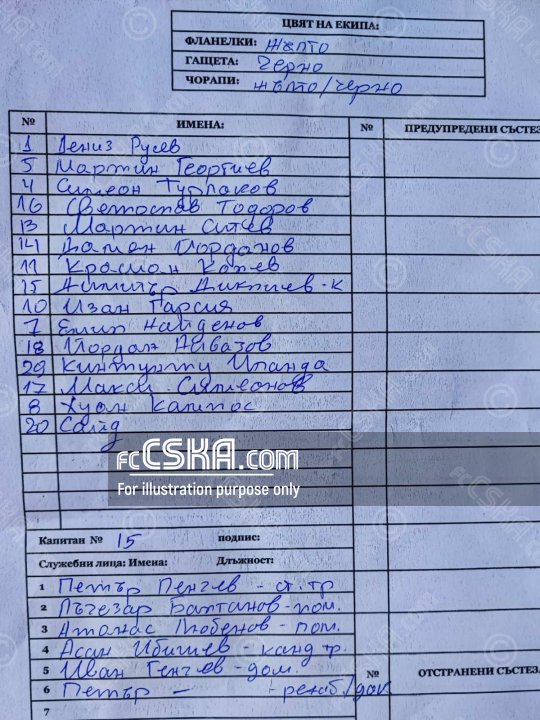 ЦВЯТ НА ЕКИПА:
ФЛАНЕЛКИ: жълто
ГАЩЕТА: Черно
ЧОРАПИ: жълто/черно
№ ИМЕНА: № ПРЕДУПРЕДЕНИ СЪСТЕЗ
1 Дениз Русев
5 Мартин Георгиев
4 Симеон
16 Светослав Тодоров
13 Мартин
14 Дамян Йорданов
11 Красиан
15 Димитър - к
10 Изан Гарсия
7 Емил Найденов
18 Йордан Айвазов
29
17 Макси Симеонов
8 Хуан Кампос
20 Сайд
fcCSKA.com
For illustration purpose only
Капитан № 15 подпис:
Служебни лица: Имена: Длъжност:
1 Петър Пенчев - ст. тр
2 Лъчезар Балтанов - пом.
3 Атанас - пом.
4 Асан Ибишев - канд тр.
5 Иван Генчев - дом.
№ ОТСТРАНЕНИ СЪСТЕЗА
6 Петър -
7